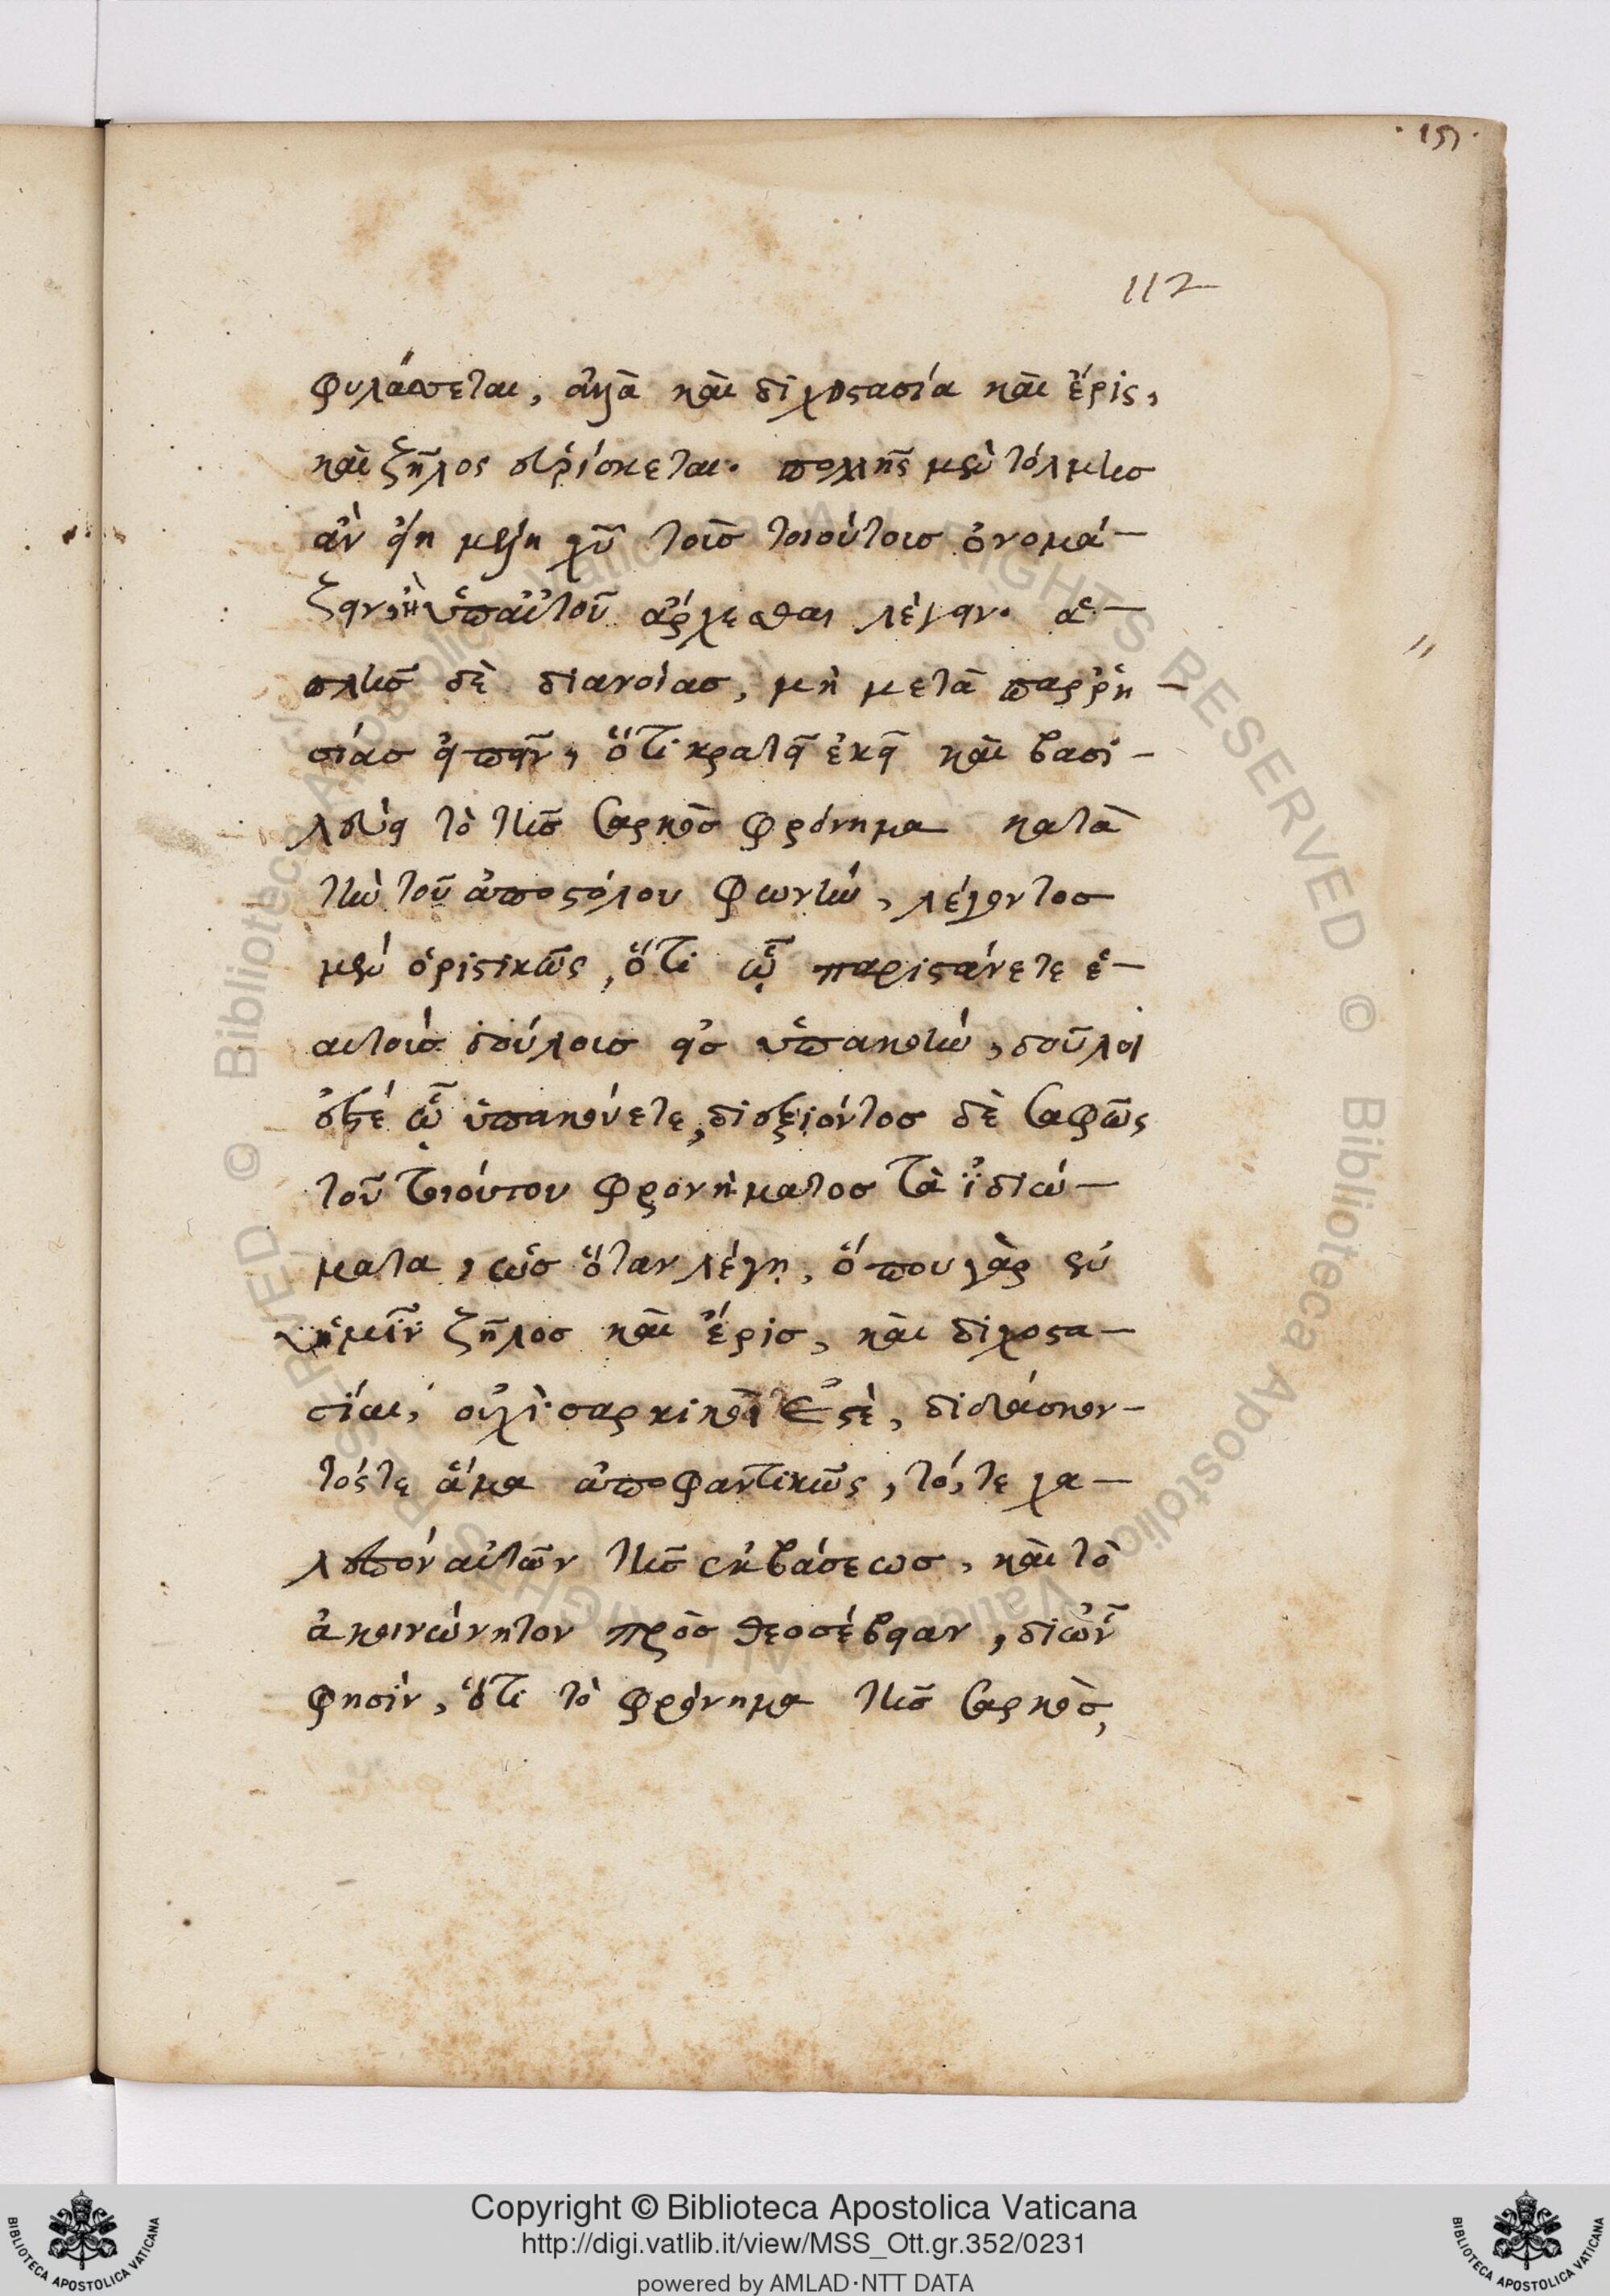 ·151·
112
φυλάσσεται, ἀλλὰ καὶ διχοστασία καὶ ἔρις,
καὶ ζῆλος εὑρίσκεται. πολλῆς μὲν τόλμης
ἂν εἴη μέλη χῦ τοὺς τοιούτους ὀνομά-
ζειν, ἢ ὑπ' αὐτοῦ ἄρχεσθαι λέγειν. ἁ-
πλῆς δὲ διανοίας, μὴ μετὰ παρρη-
σίας εἰπεῖν, ὅτι κρατεῖ ἐκεῖ καὶ βασι-
λεύει τὸ τῆς σαρκὸς φρόνημα κατὰ
τὴν τοῦ ἀποστόλου φωνήν, λέγοντος
μὲν ὁριστικῶς, ὅτι ᾧ παριστάνετε ἑ-
αυτοὺς δούλους εἰς ὑπακοήν, δοῦλοι
ἐστέ ᾧ ὑπακούετε, διεξιόντος δὲ σαφῶς
τοῦ τοιούτου φρονήματος τὰ ἰδιώ-
ματα, ὡς ὅταν λέγῃ, ὅπου γὰρ ἐν
ὑμῖν ζῆλος καὶ ἔρις, καὶ διχοστα-
σίαι, οὐχὶ σαρκικοί ἐστὲ, διδάσκον-
τός τε ἅμα ἀποφαντικῶς, τό, τε χα-
λεπὸν αὐτῶν τῆς ἐκβάσεως, καὶ τὸ
ἀκοινώνητον πρὸς θεοσέβειαν, δι ὧν
φησίν, ὅτι τὸ φρόνημα τῆς σαρκὸς,
Copyright © Biblioteca Apostolica Vaticana
http://digi.vatlib.it/view/MSS_Ott.gr.352/0231
powered by AMLAD·NTT DATA
BIBLIOTECA APOSTOLICA VATICANA
BIBLIOTECA APOSTOLICA VATICANA